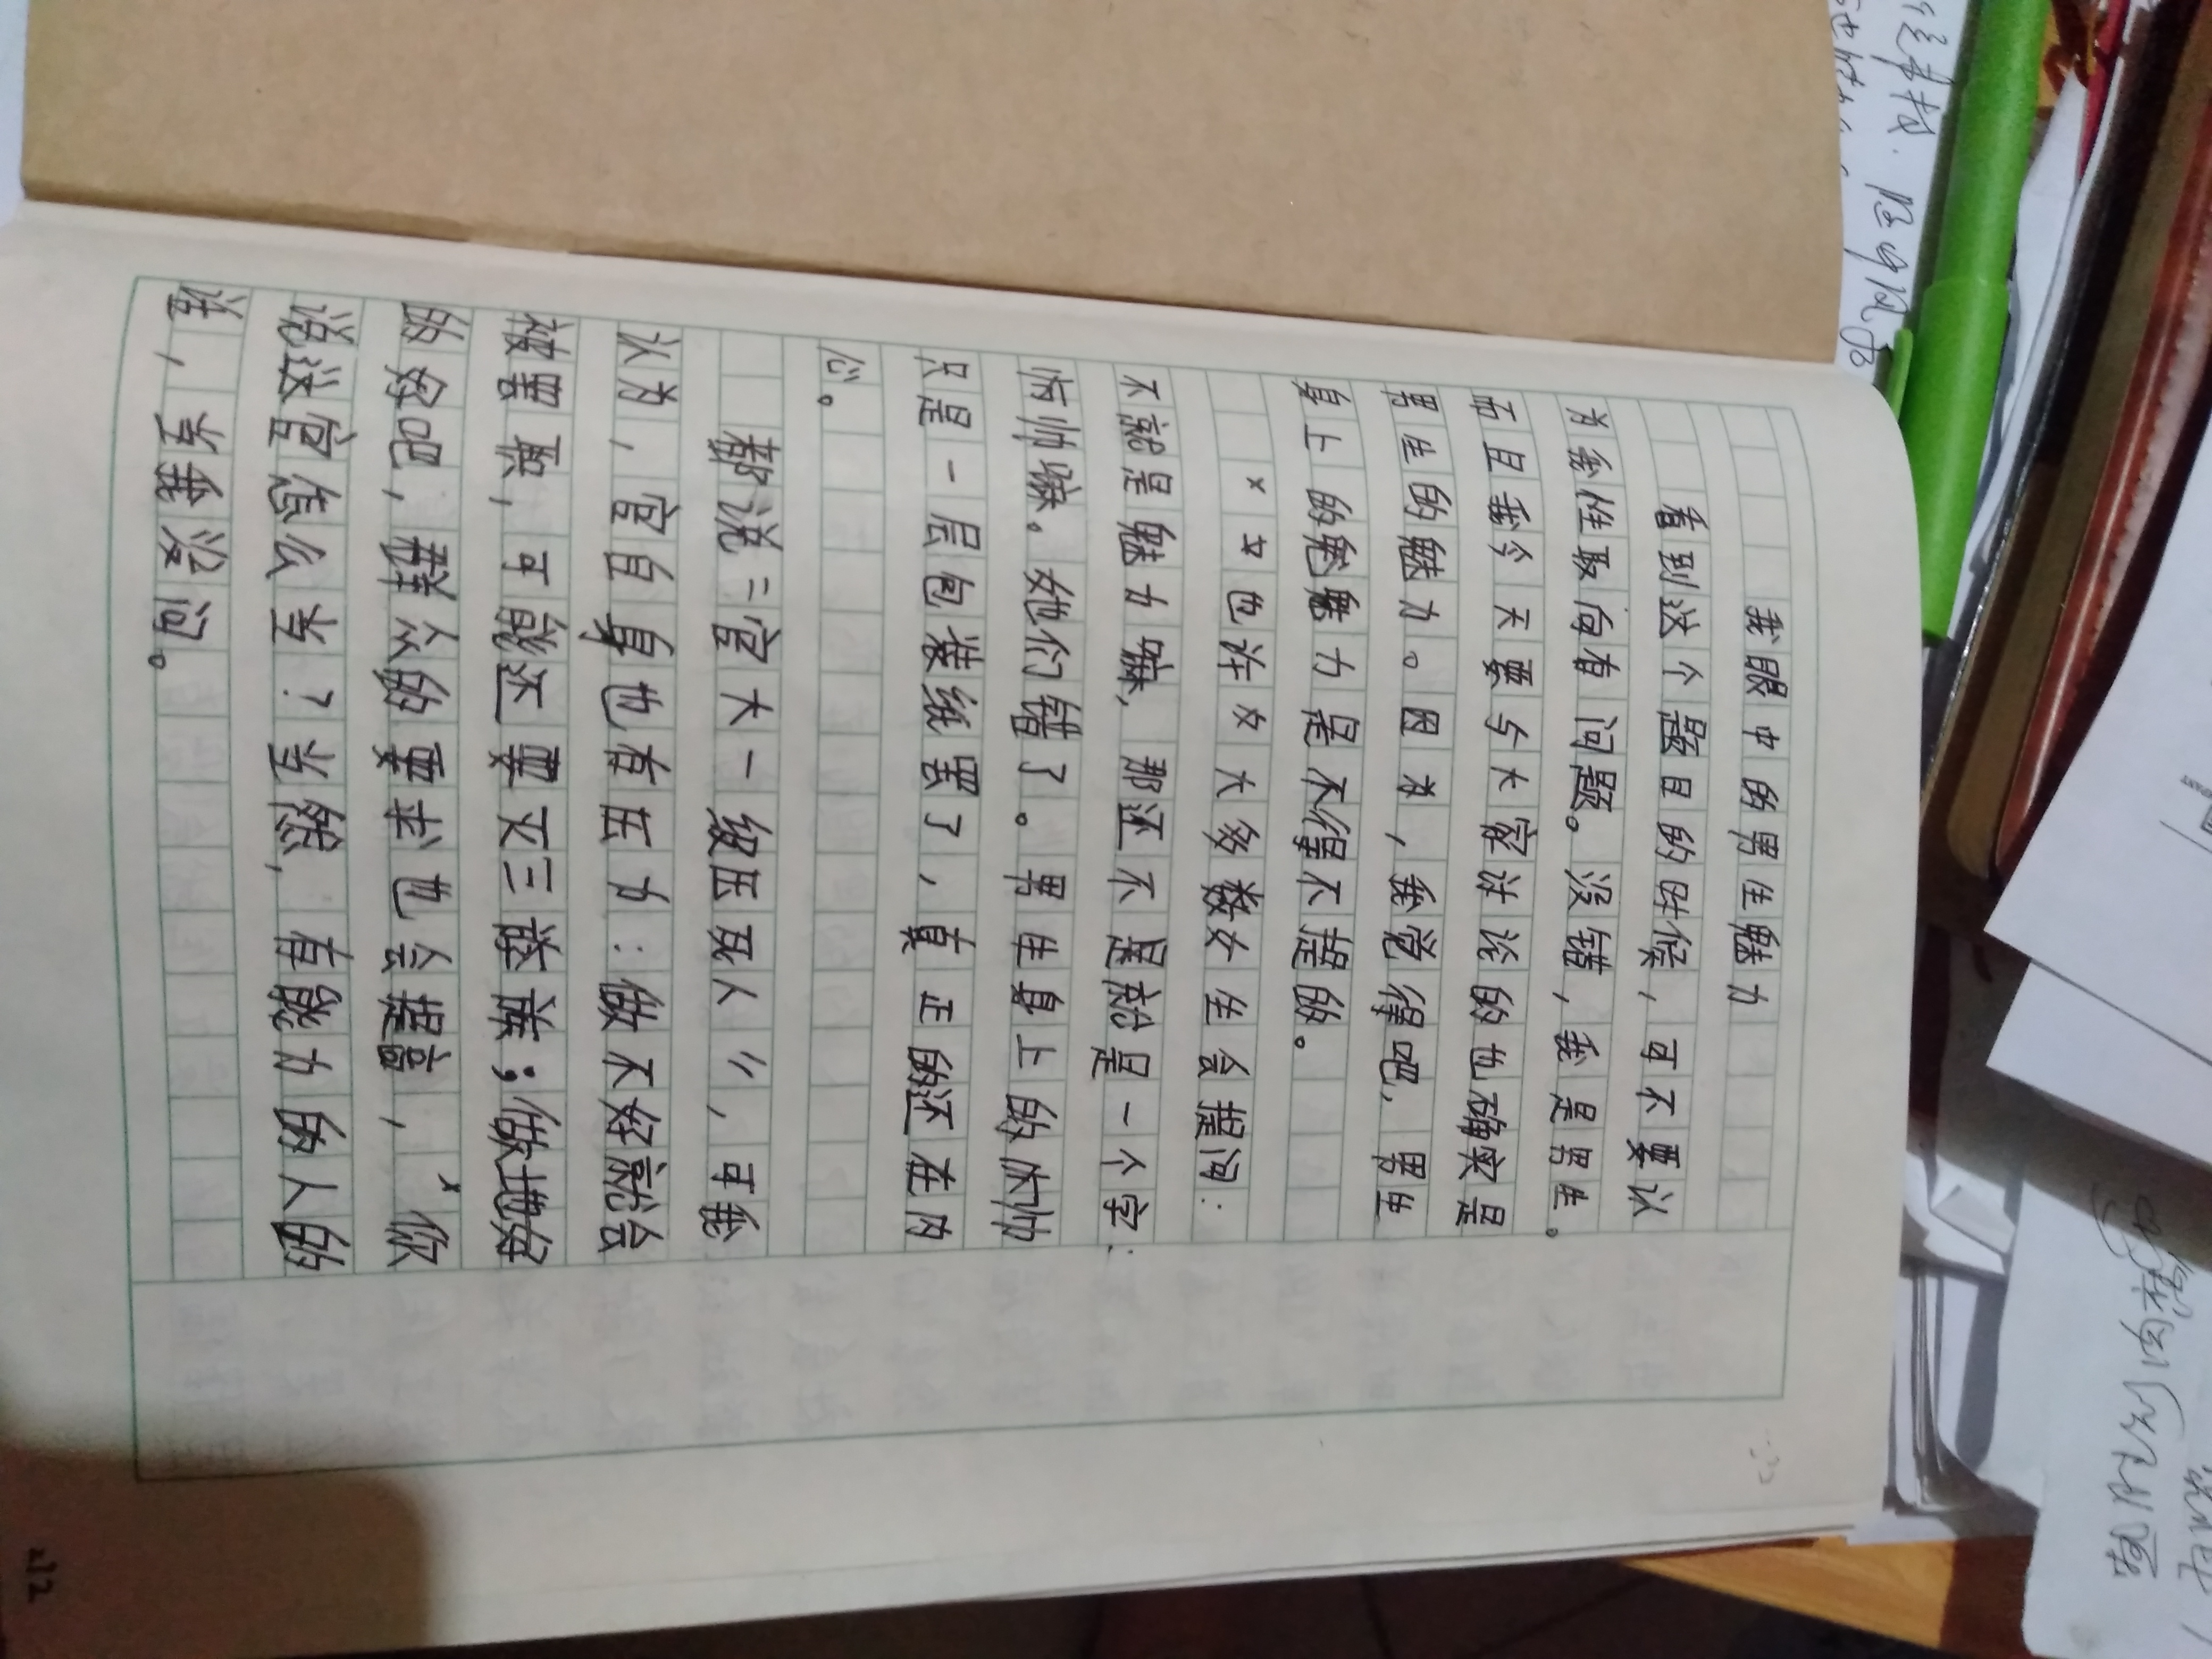 我眼中的男生魅力
看到这个题目的时候，可不要认
为我性取向有问题。没错，我是男生。
而且我今天要与大家讨论的也确实是
男生的魅力。因为，我觉得吧，男生
身上的魅力是不得不提的。
也许大多数女生会提问：
不就是魅力嘛，那还不是就是一个字：
帅嘛。她们错了。男生身上的帅
只是一层包装纸罢了，真正的还在内
心。
都说“官大一级压死人”，可我
认为，官自身也有压力：做不好就会
被罢职，可能还要灭三族；做地好
的好吧，群众的要求也会提高，你
说这官怎么当？当然，有能力的人的
话，当我没问。